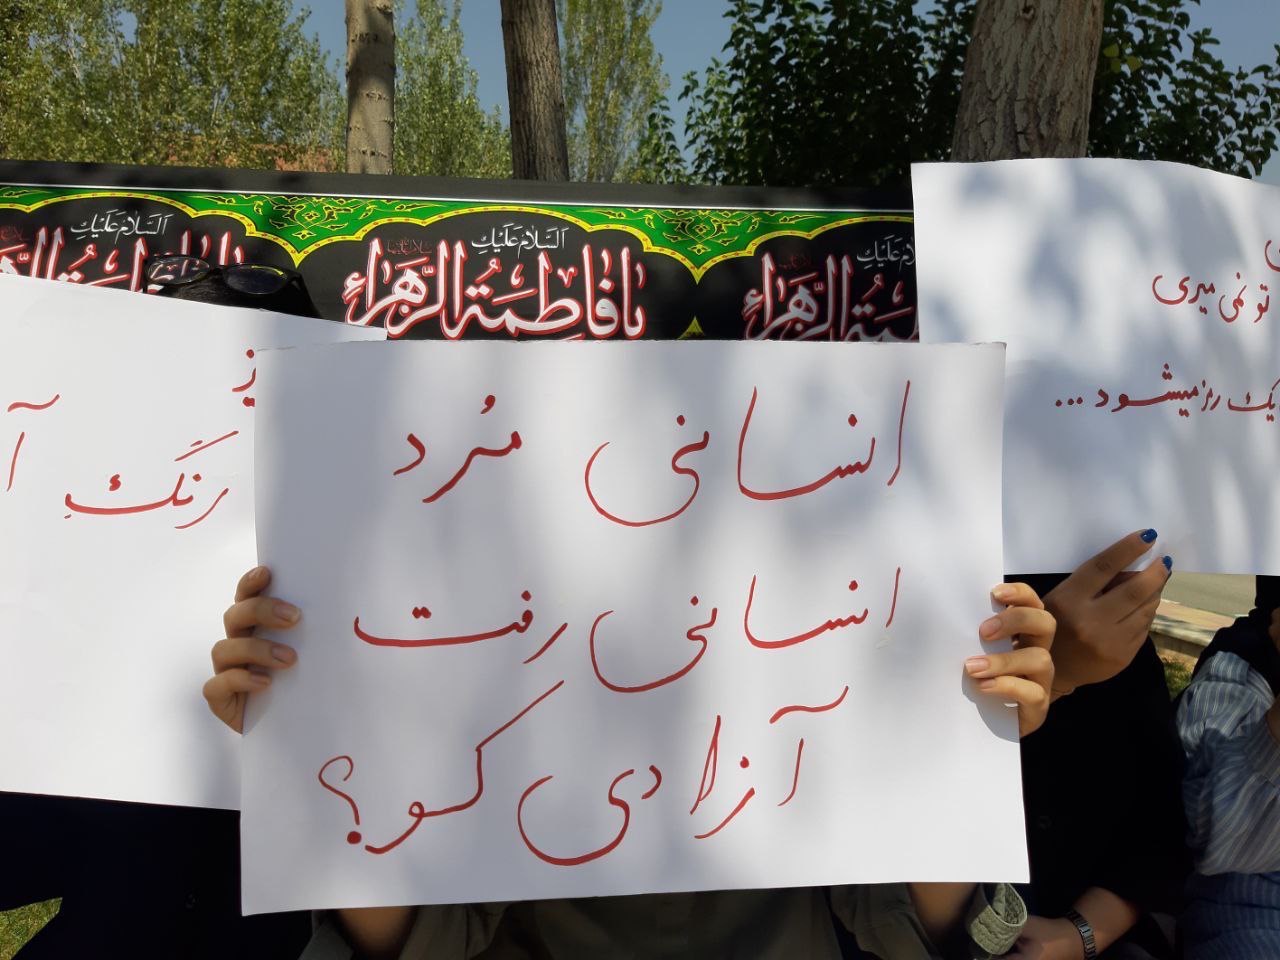 السلام علیک
یا فاطمة الزهراء
السلام علیک
الزهراء
انسانی مُرد
انسانی رفت
آزادی کو؟
تو نمی میری
یک رمز میشود...
رنگِ آ